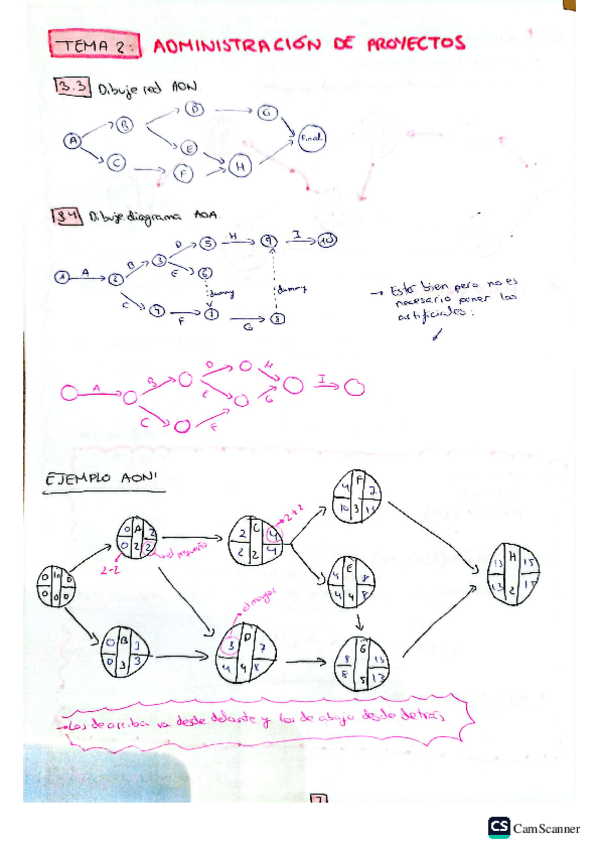 TEMA 2: ADMINISTRACIÓN DE PROYECTOS
3.3 Dibuje red AON.
A B C D E F G H Final
3.4 Dibuje diagrama AOA.
1 A 2 B 3 D 5 H 9 I 10
E 6 dummy dummy
C 4 F 7 G 8
→ Esto bien pero no es
necesario poner las
artificiales:
A B D H I
C E F G
EJEMPLO AON'
4 F 7
10 3 13
0 A 2
0 2 2
2 C 4
2 2 4
2+2
el pequeño
2-2
0 In 0
0 0 0
4 E 8
4 4 8
13 H 15
13 2 15
el mayor
0 B 3
3 3
3 D 7
4 4 8
8 G 13
8 5 13
→ Los de arriba va desde delante y los de abajo desde detrás
7
CS CamScanner